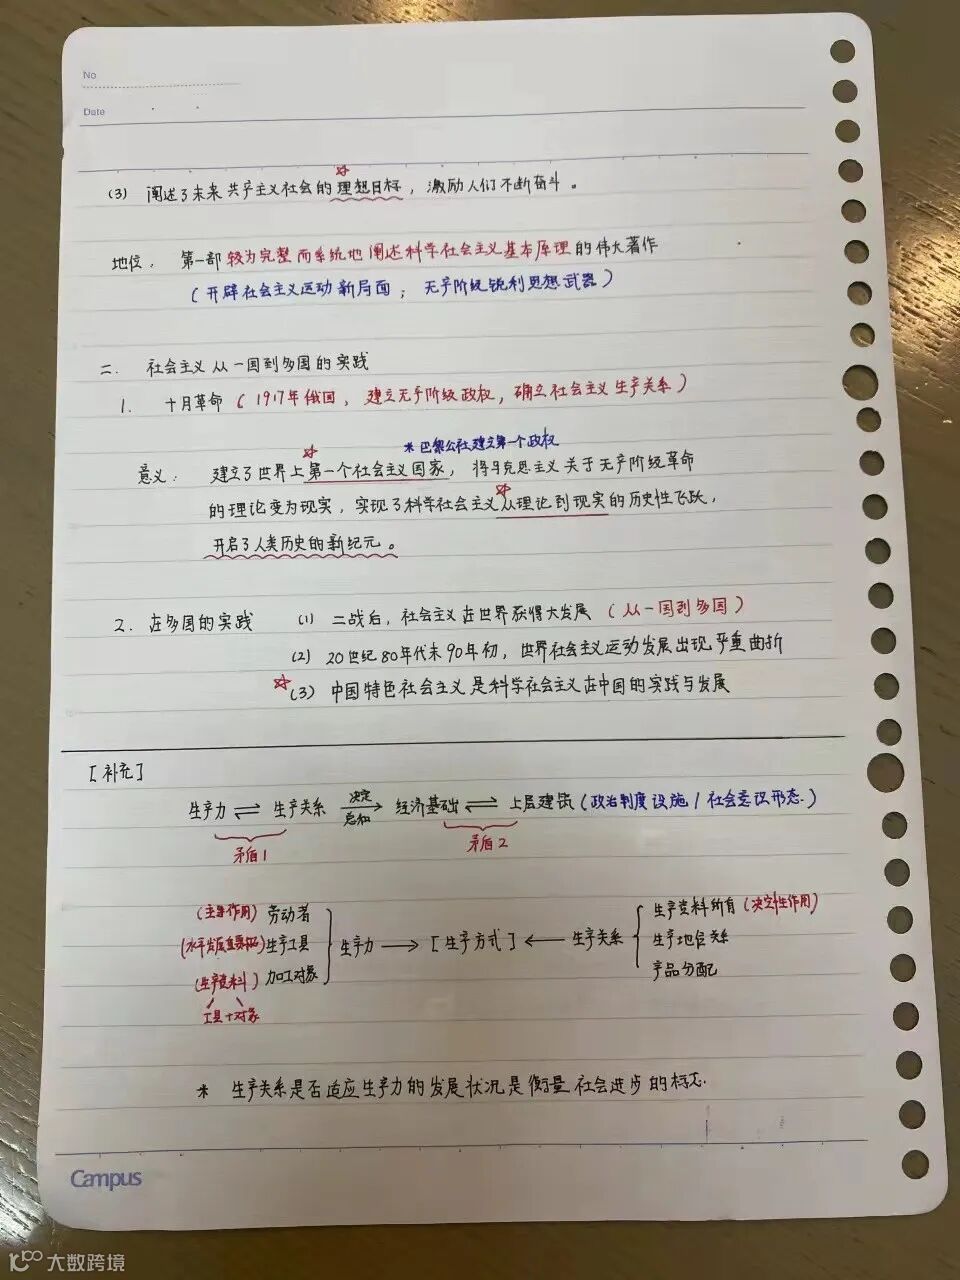 No
Date
(3) 阐述了未来共产主义社会的理想目标，激励人们不断奋斗。
地位：第一部较为完整而系统地阐述科学社会主义基本原理的伟大著作
（开辟社会主义运动新局面；无产阶级锐利思想武器）
二. 社会主义从一国到多国的实践
1. 十月革命（1917年俄国，建立无产阶级政权，确立社会主义生产关系）
* 巴黎公社建立第一个政权
意义：建立了世界上第一个社会主义国家，将马克思主义关于无产阶级革命
的理论变为现实，实现了科学社会主义从理论到现实的历史性飞跃，
开启了人类历史的新纪元。
2. 在多国的实践 (1) 二战后，社会主义在世界获得大发展（从一国到多国）
(2) 20世纪80年代末90年初，世界社会主义运动发展出现严重曲折
(3) 中国特色社会主义是科学社会主义在中国的实践与发展
[补充]
生产力 ⇌ 生产关系 决定 总和 → 经济基础 ⇌ 上层建筑（政治制度设施/社会意识形态.）
矛盾1 矛盾2
（主导作用）劳动者 生产资料所有（决定性作用）
生产工具 生产力 → [生产方式] ← 生产关系 生产地位关系
（生产资料）加工对象 产品分配
工具+对象
* 生产关系是否适应生产力的发展状况是衡量社会进步的标志.
Campus
大数跨境